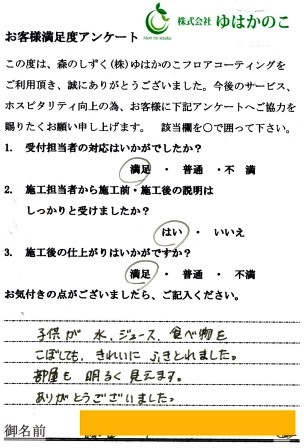 株式会社 ゆはかのこ
Mori no shizuku
お客様満足度アンケート
この度は、森のしずく(株)ゆはかのこフロアコーティングを
ご利用頂き、誠にありがとうございました。今後のサービス、
ホスピタリティ向上の為、お客様に下記アンケートへご協力を
賜りたくお願い申し上げます。 該当欄を〇で囲って下さい。
1. 受付担当者の対応はいかがでしたか?
満足 ・ 普通 ・ 不満
2. 施工担当者から施工前・施工後の説明は
しっかりと受けましたか?
はい ・ いいえ
3. 施工後の仕上がりはいかがですか?
満足 ・ 普通 ・ 不満
お気付きの点がございましたら、ご記入ください。
子供が 水、ジュース、食べ物を
こぼしても、きれいに ふきとれました。
部屋も 明るく 見えます。
ありがとうございました。
御名前